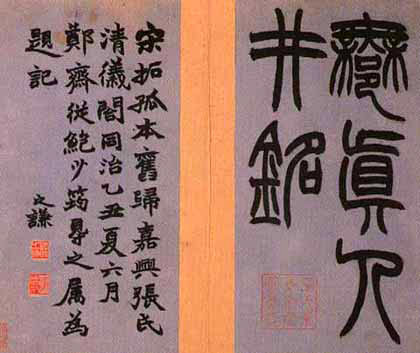 鄦眞人
井銘
宋拓孤本舊歸嘉興張氏
清儀閣同治乙丑夏六月
鄭齋從鮑少筠㝵之属為
題記
之謙